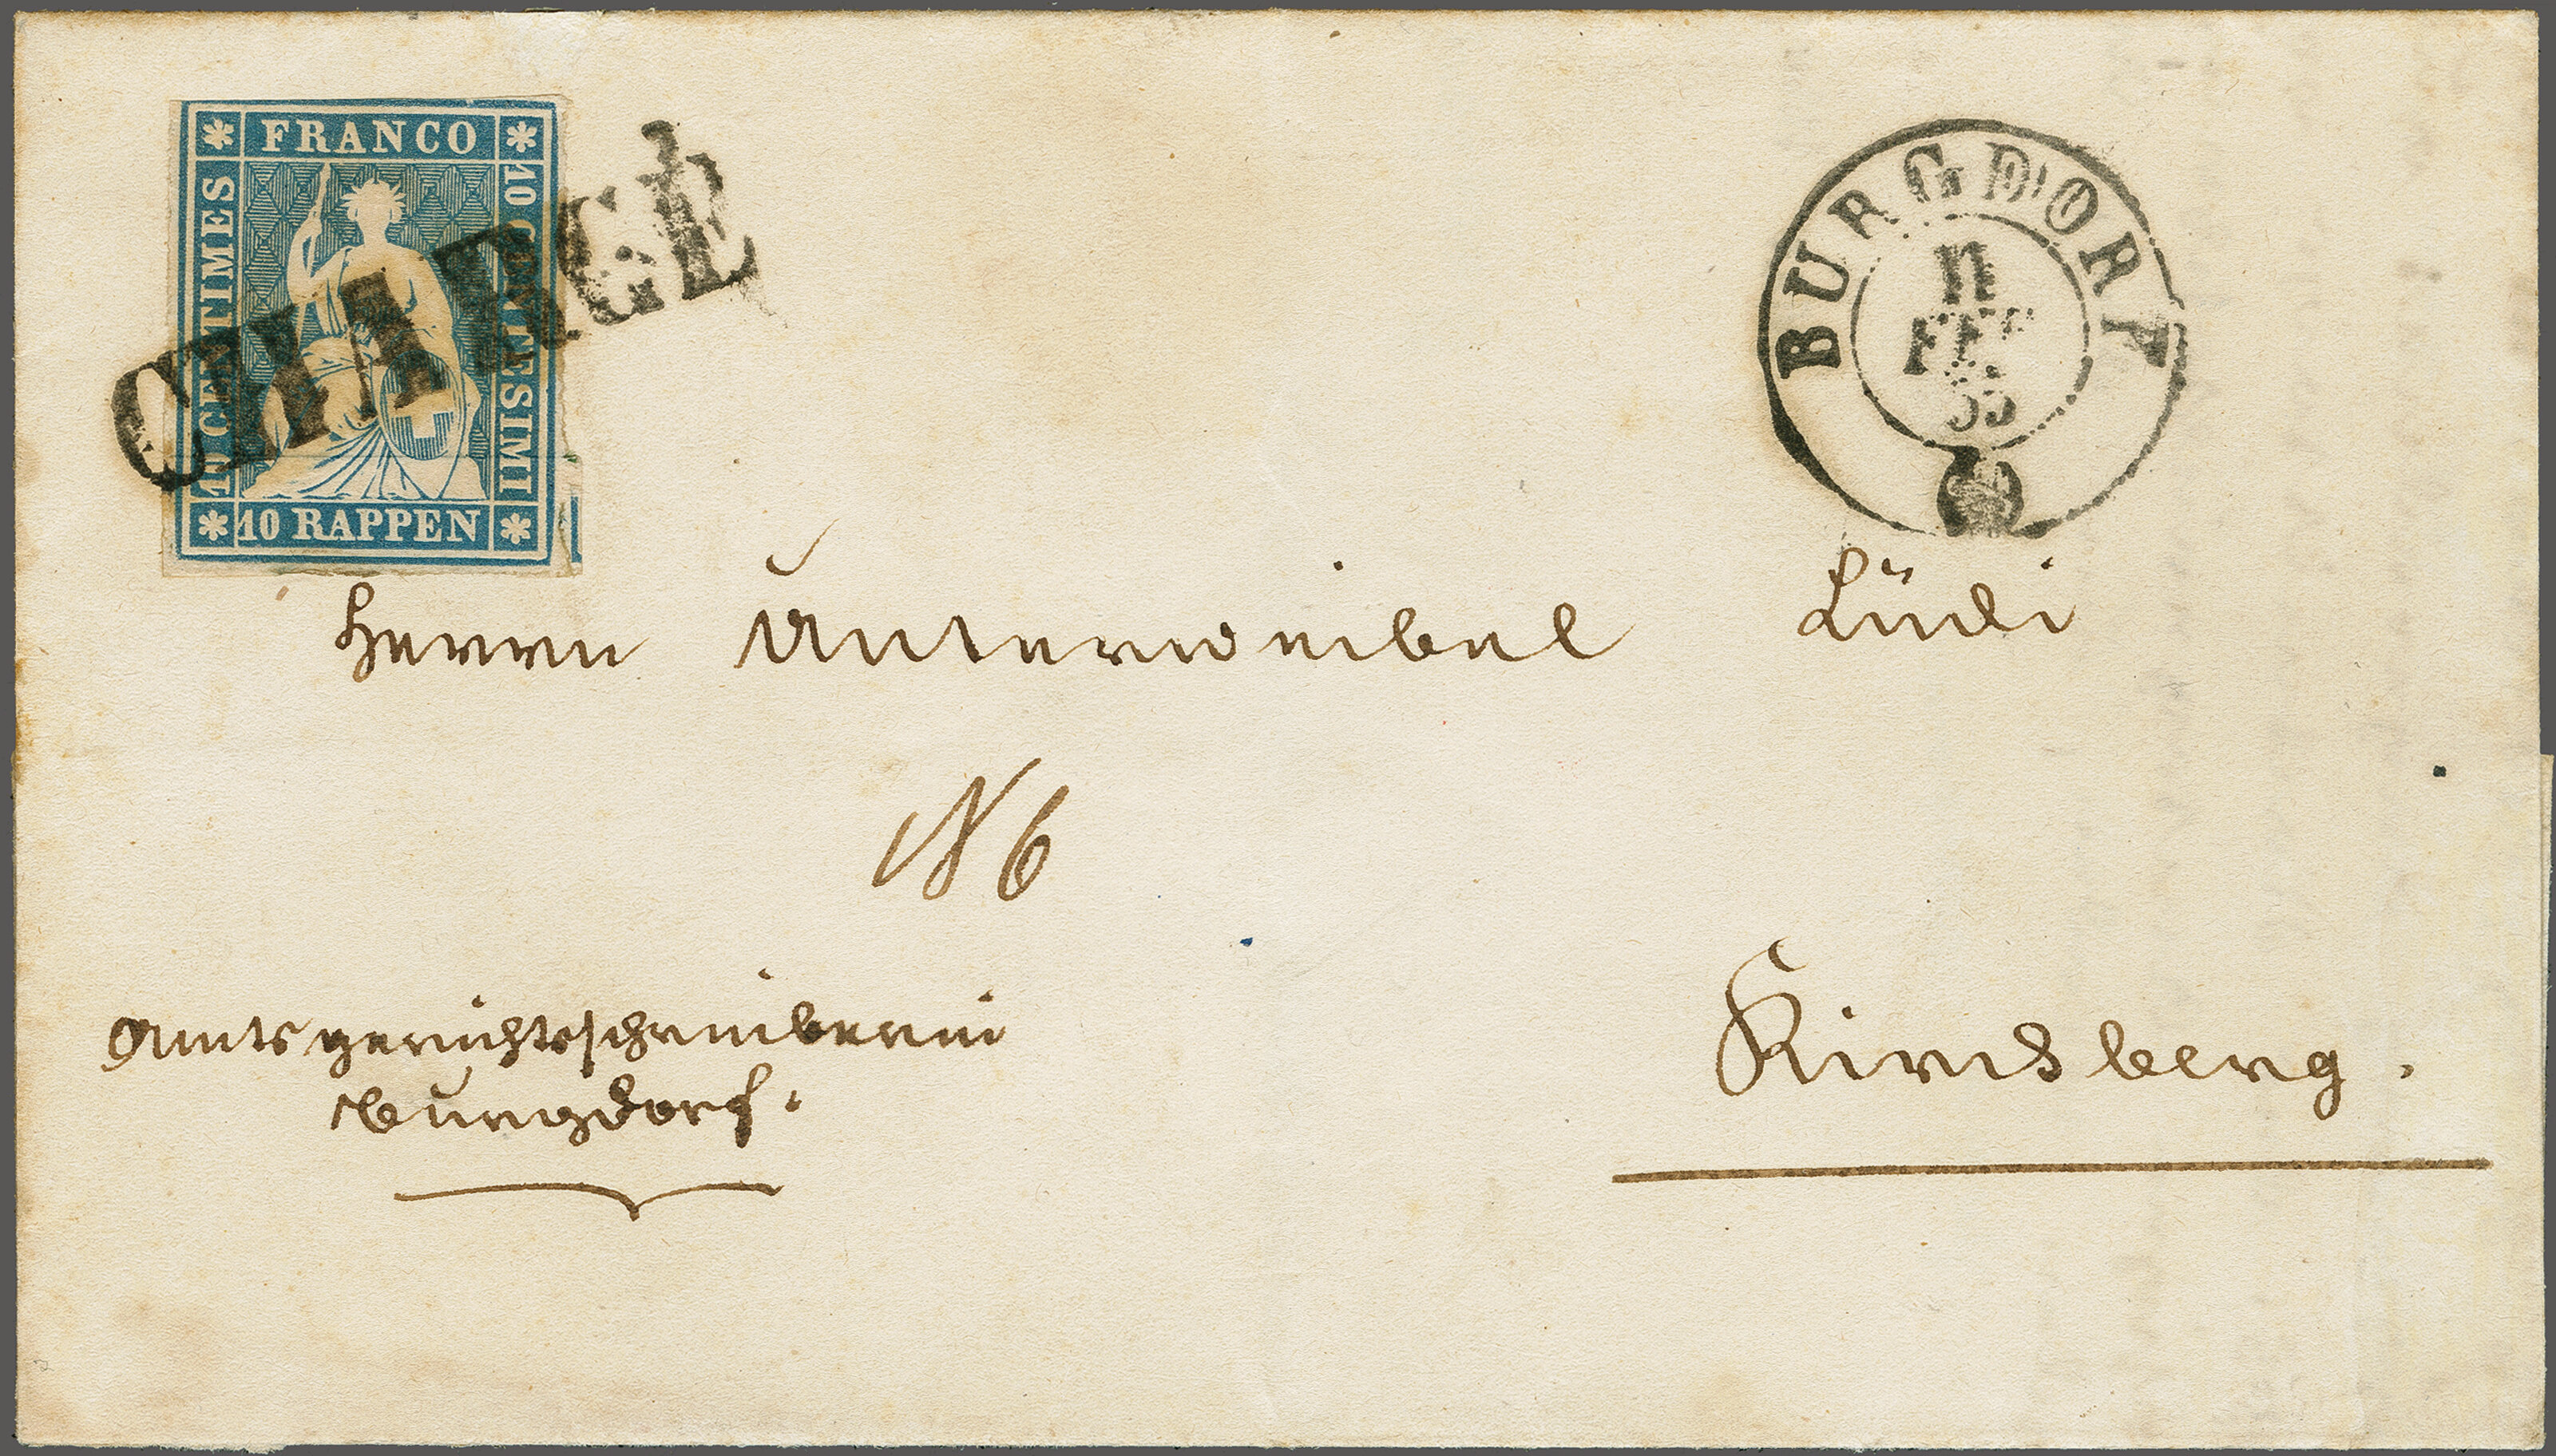 FRANCO
10 CENTIMES
10 CENTESIMI
10 RAPPEN
CHARGÉ
BURGDORF
11
FEB
55
Herrn Unterweibel Lüdi
N 6
Amtsgerichtsschreiberei
Burgdorf.
Kirchberg.